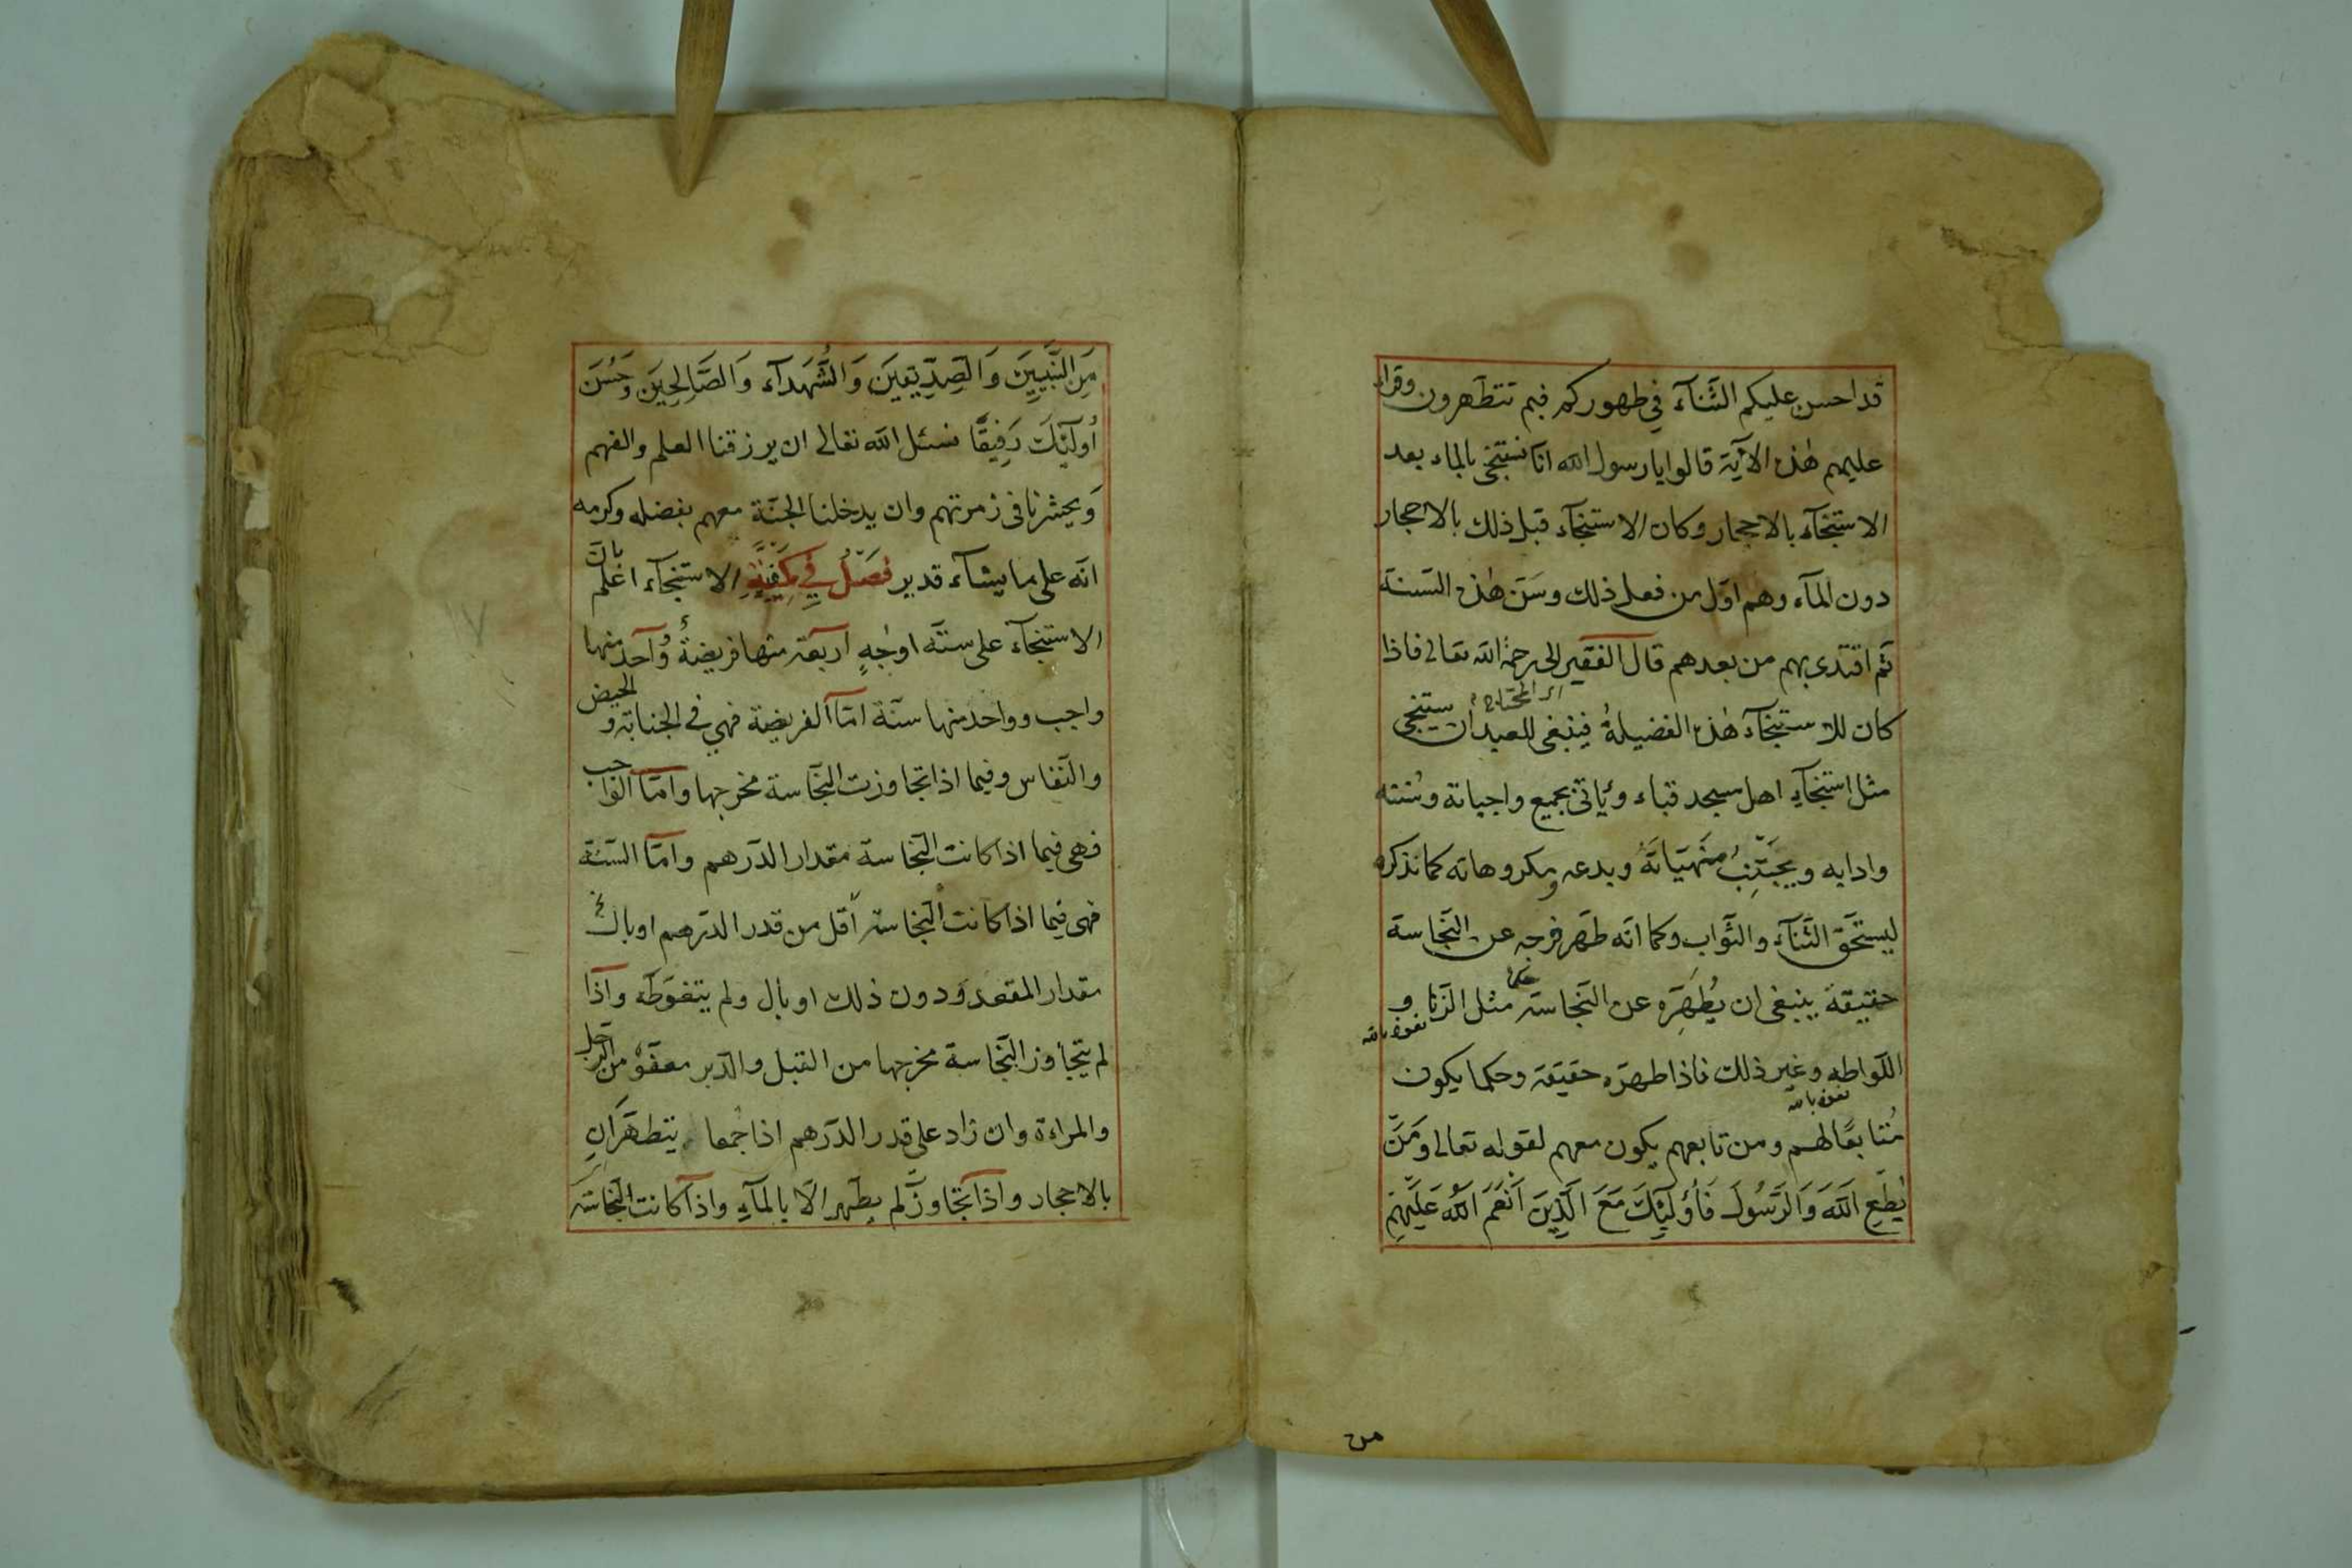 قد احسن عليكم الثَّنآء في طهوركم فبم تتطَهرون وقراء
عليهم هٰذه الآية قالوا يا رسول الله انّا نستنجى بالماء بعد
الاستنجآء بالاحجار وكان الاستنجآء قبل ذلك بالاحجار
دون المآء وهم اوّل من فعل ذلك وسَنّ هٰذه السّنة
ثمّ اقتدى بهم من بعدهم قال الفقير الى رحمة الله تعالى فاذا
كان للاستنجآء هٰذه الفضيلةُ فينبغى للعبد ان يستنجى
مثل استنجآءِ اهل مسجد قباء ويأتى بجميع واجباته وسُننه
وادابه ويجتَنِبُ منهيّاتَهُ وبدعه ومكروهاته كما نذكره
ليستحَقّ الثّنآء والثّواب وكما انّه طَهر فرجه عن النّجاسة
حقيقةً ينبغى ان يُطَهِّرَه عن النّجاسة حكما مثل الزّنا و نعوذ بالله
اللّواطه وغير ذلك فاذا طهرّه حقيقة وحكما يكون
نعوذ بالله
مُتابعًا لهم ومن تابعهم يكون معهم لقوله تعالى وَمَنْ
يُطِعِ اللهَ وَالرَّسُولَ فَأُولَئِكَ مَعَ الَّذِينَ اَنْعَمَ اللهُ عَلَيْهِمْ
من
مِنَ النَّبِيِّينَ وَالصِّدِّيقِينَ وَالشُّهَدآء وَالصَّالِحِينَ وَحَسُنَ
أُولَئِكَ رَفِيقًا نسئل الله تعالى ان يرزقنا العلم والفهم
وَيحشرنا فى زمرتهم وان يدخلنا الجنّة معهم بفضله وكرمه
انّه على ما يشآء قدير فصلٌ في كيفيّةِ الاستنجآء اعلم بانّ
الاستنجآء على ستّة اوجُهٍ اربعة منها فريضةٌ وواحد منها
واجب وواحد منها سنّة امّا الفريضة فهي في الجنابة و الحيض
والنّفاس وفيما اذا تجاوزت النجّاسة مخرجها وامّا الواجب
فهى فيما اذا كانت النّجاسة مقدار الدّرهم وامّا السّنّة
فهى فيما اذا كانت النّجاسة أقل من قدر الدّرهم او بالغ
مقدار المقعد ودون ذلك او بال ولم يتغوّط واذا
لم يتجاوز النّجاسة مخرجها من القبل والدّبر معفوّ من الرّجل
والمراءة وان زاد على قدر الدّرهم اذا جُمعا يتطهّرانِ
بالاحجار واذا تجاوز لم يطهر الّا بالمآءِ واذا كانت النّجاسة